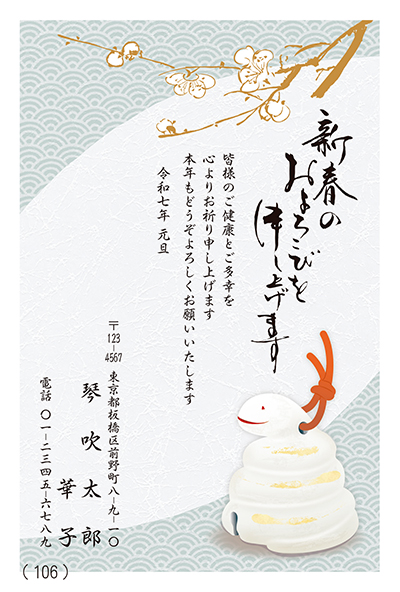 新春の
およろこびを
申し上げます
皆様のご健康とご多幸を
心よりお祈り申し上げます
本年もどうぞよろしくお願いいたします
令和七年 元旦
〒123-4567 東京都板橋区前野町八-九-一〇
琴吹太郎
華子
電話 〇一-二三四五-六七八九
(106)